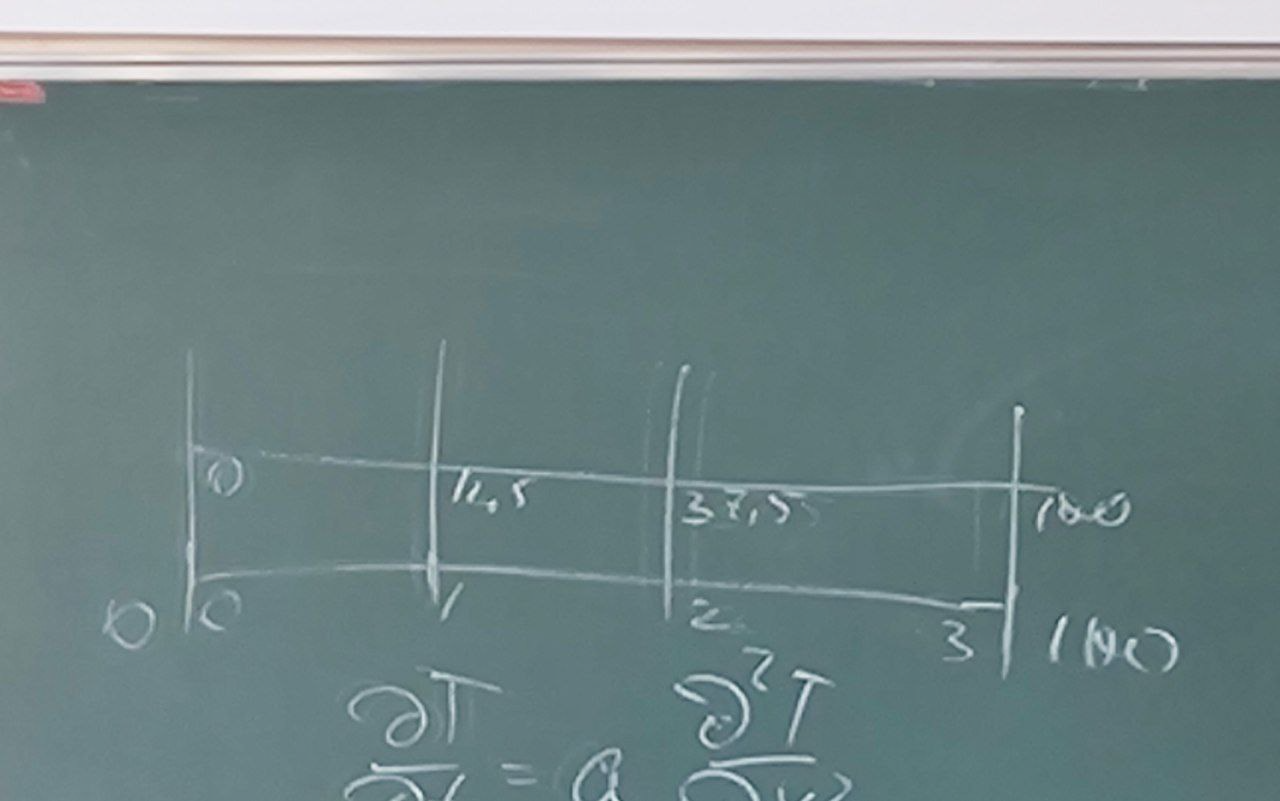 0 12,5 37,5 100
0 0 1 2 3 100
∂T ∂²T
= a